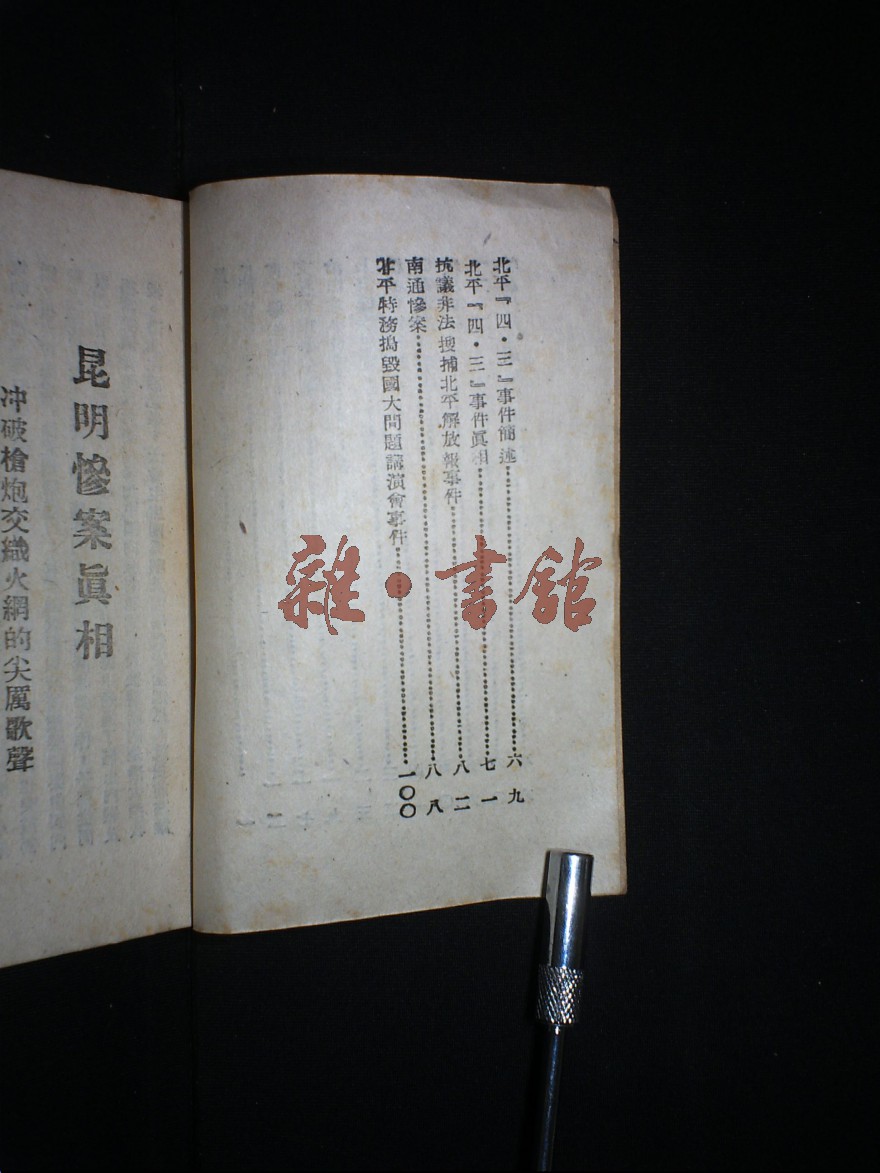 北平『四·三』事件簡述……六九
北平『四·三』事件眞相……七一
抗議非法搜捕北平解放報事件……八二
南通慘案……八八
北平特務搗毀國大問題講演會事件……一〇〇
昆明慘案眞相
冲破槍炮交織火網的尖厲歌聲
雜·書館